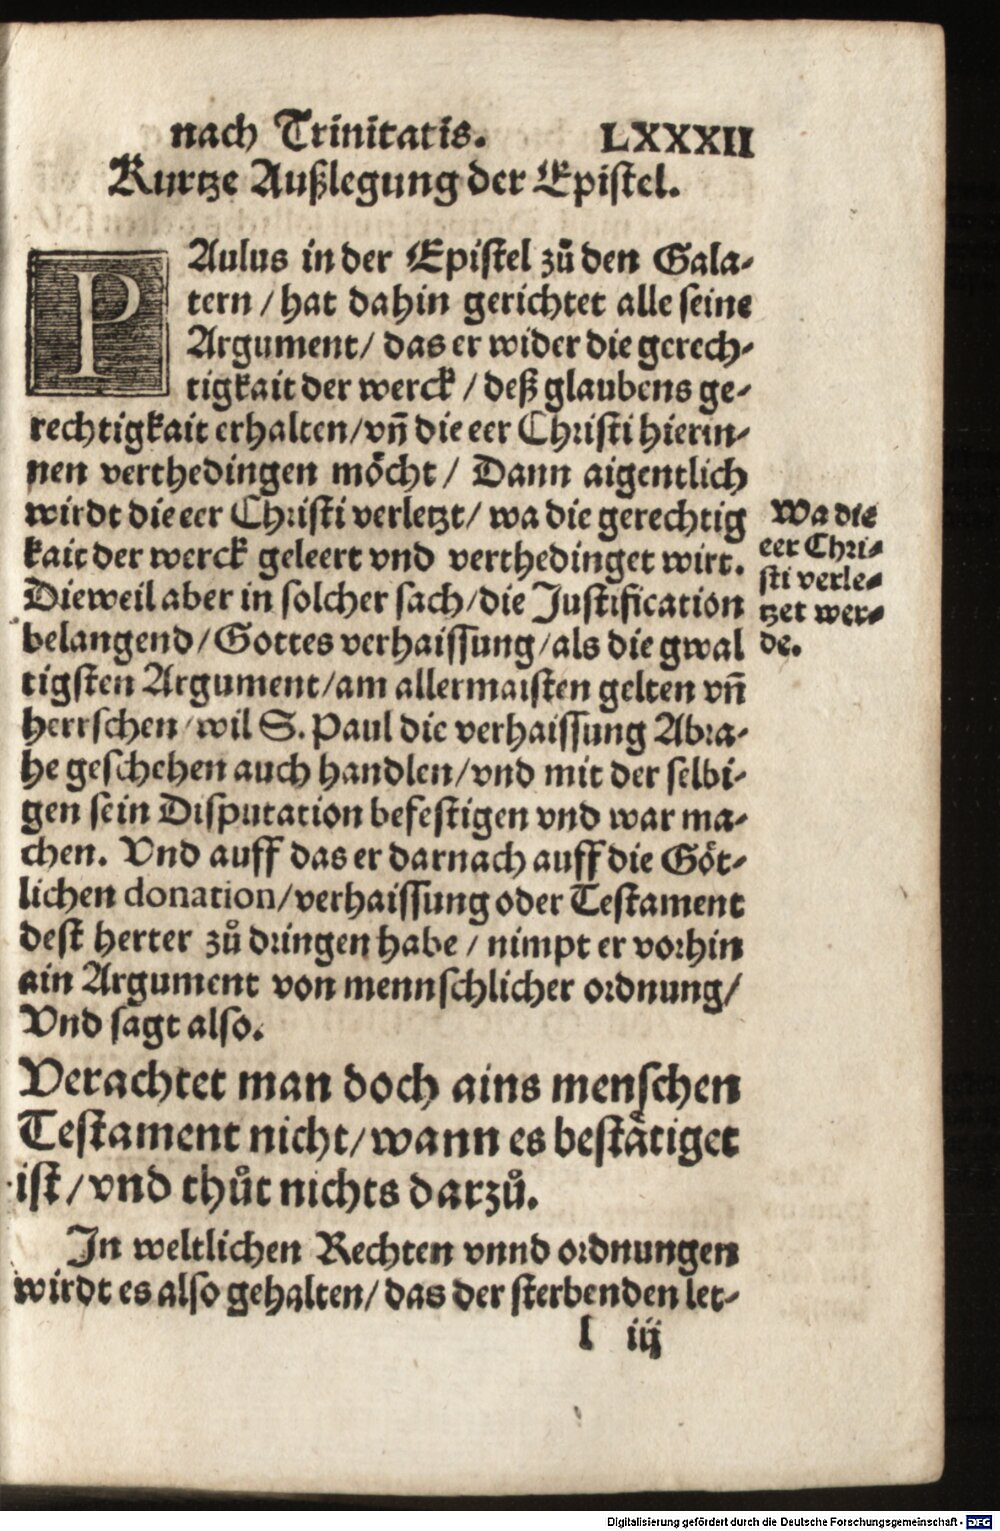 nach Trinitatis. LXXXII
Kurtze Außlegung der Epistel.
PAulus in der Epistel zů den Gala-
tern / hat dahin gerichtet alle seine
Argument / das er wider die gerech-
tigkait der werck / deß glaubens ge-
rechtigkait erhalten / vñ die eer Christi hierin-
nen verthedingen möcht / Dann aigentlich
wirdt die eer Christi verletzt / wa die gerechtig
kait der werck geleert vnd verthedinget wirt.
Dieweil aber in solcher sach / die Justification
belangend / Gottes verhaissung / als die gwal
tigsten Argument / am allermaisten gelten vñ
herrschen / wil S. Paul die verhaissung Abra-
he geschehen auch handlen / vnd mit der selbi-
gen sein Disputation befestigen vnd war ma-
chen. Vnd auff das er darnach auff die Göt-
lichen donation / verhaissung oder Testament
dest herter zů dringen habe / nimpt er vorhin
ain Argument von mennschlicher ordnung /
Vnd sagt also.
Wa die
eer Chri-
sti verle-
tzet wer-
de.
Verachtet man doch ains menschen
Testament nicht / wann es bestätiget
ist / vnd thůt nichts darzů.
In weltlichen Rechten vnnd ordnungen
wirdt es also gehalten / das der sterbenden let-
l iij
Digitalisierung gefördert durch die Deutsche Forschungsgemeinschaft - DFG